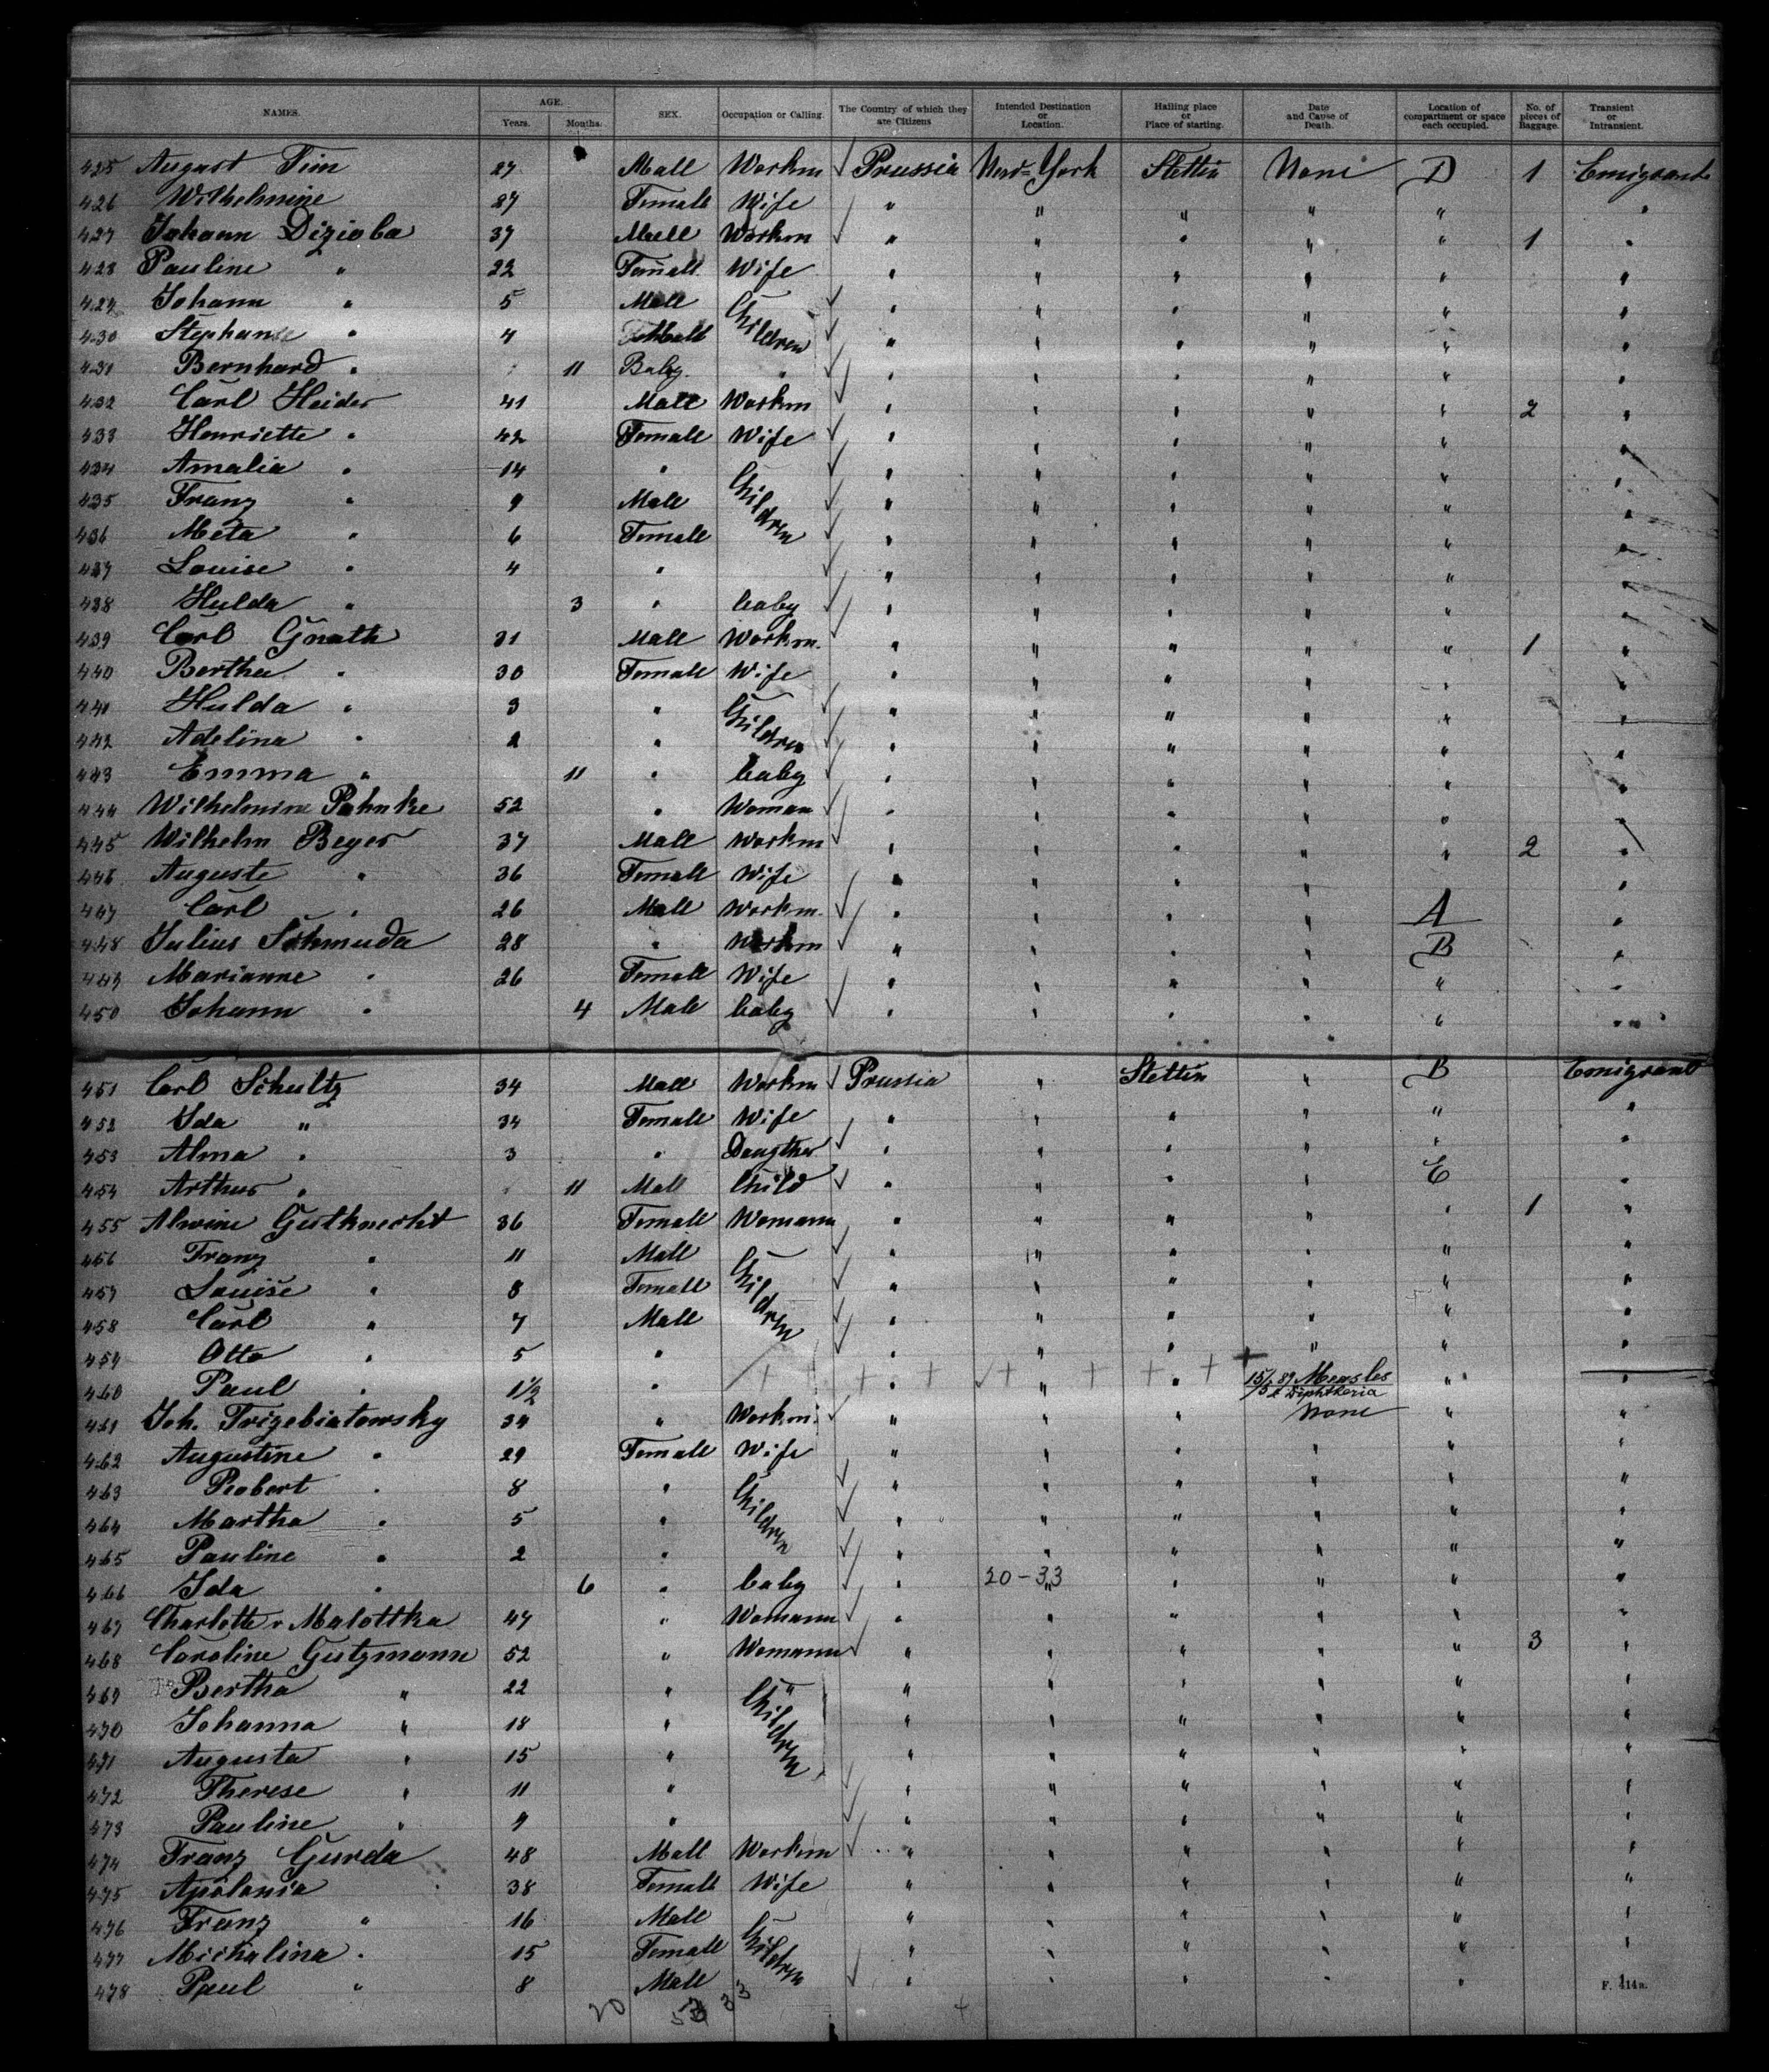 NAMES. AGE. Years. Months. SEX. Occupation or Calling. The Country of which they are Citizens Intended Destination or Location. Hailing place or Place of starting. Date and Cause of Death. Location of compartment or space each occupied. No. of pieces of Baggage. Transient or Intransient.
425 August Timm 27 Mall Workm Prussia New-York Stettin None D 1 Emigrant
426 Wilhelmine 27 Female Wife " " " " " "
427 Johann Dizioba 37 Mall Workm " " " " " 1 "
428 Pauline " 22 Female Wife " " " " " "
429 Johann " 5 Mall Children " " " " " "
430 Stephan " 4 " " " " " "
431 Bernhard " 11 Baby " " " " " " "
432 Carl Heider 41 Male Workm " " " " " 2 "
433 Henriette " 42 Female Wife " " " " " "
434 Amalia " 14 " Children " " " " " "
435 Franz " 9 Male " " " " " "
436 Meta " 6 Female " " " " " "
437 Louise " 4 " " " " " " "
438 Hulda " 3 " baby " " " " " "
439 Carl Gnath 31 Male Workm. " " " " " 1 "
440 Bertha " 30 Female Wife " " " " " "
441 Hulda " 3 " Children " " " " " "
442 Adelina " 2 " " " " " " "
443 Emma " 11 " baby " " " " " "
444 Wilhelmine Pahnke 52 " Woman " " " " " "
445 Wilhelm Beyer 37 Male Workm " " " " " 2 "
446 Auguste " 36 Female Wife " " " " "
447 Carl " 26 Male Workm. " " " " A "
448 Julius Schmuda 28 " Workm " " " " B "
449 Marianne " 26 Female Wife " " " " " "
450 Johann " 4 Male baby " " " " " "
451 Carl Schultz 34 Male Workm Prussia " Stettin " B Emigrant
452 Ida " 34 Female Wife " " " " " "
453 Alma " 3 " Daugther " " " " " "
454 Arthur " 11 Mall Child " " " " E "
455 Alwine Gutknecht 36 Female Womann " " " " " 1 "
456 Franz " 11 Mall Children " " " " " "
457 Louise " 8 Female " " " " " "
458 Carl " 7 Mall " " " " " "
459 Otto " 5 " " " " " " "
460 Paul " 1½ " + + + + + + + + + " " 15/5 89 Measles & Diphtheria " "
461 Joh. Trizebiatowsky 34 " Workm. " " " None " "
462 Augustine " 29 Female Wife " " " " " "
463 Robert " 8 " Children " " " " " "
464 Martha " 5 " " " " " " "
465 Pauline " 2 " " " " " " "
466 Ida " 6 " baby " 20-33 " " " "
467 Charlotte v Malottka 47 " Womann " " " " " "
468 Caroline Gutzmann 52 " Womann " " " " " 3 "
469 Bertha " 22 " " Children " " " " " "
470 Johanna " 18 " " " " " " "
471 Augusta " 15 " " " " " " "
472 Therese " 11 " " " " " " "
473 Pauline " 9 " " " " " " "
474 Franz Gurda 48 Mall Workm " " " " " "
475 Apolonia " 38 Female Wife " " " " " "
476 Franz " 16 Male Children " " " " " "
477 Michalina " 15 Female " " " " " "
478 Paul " 8 Male " " " " "
F. 114 B.
20 33